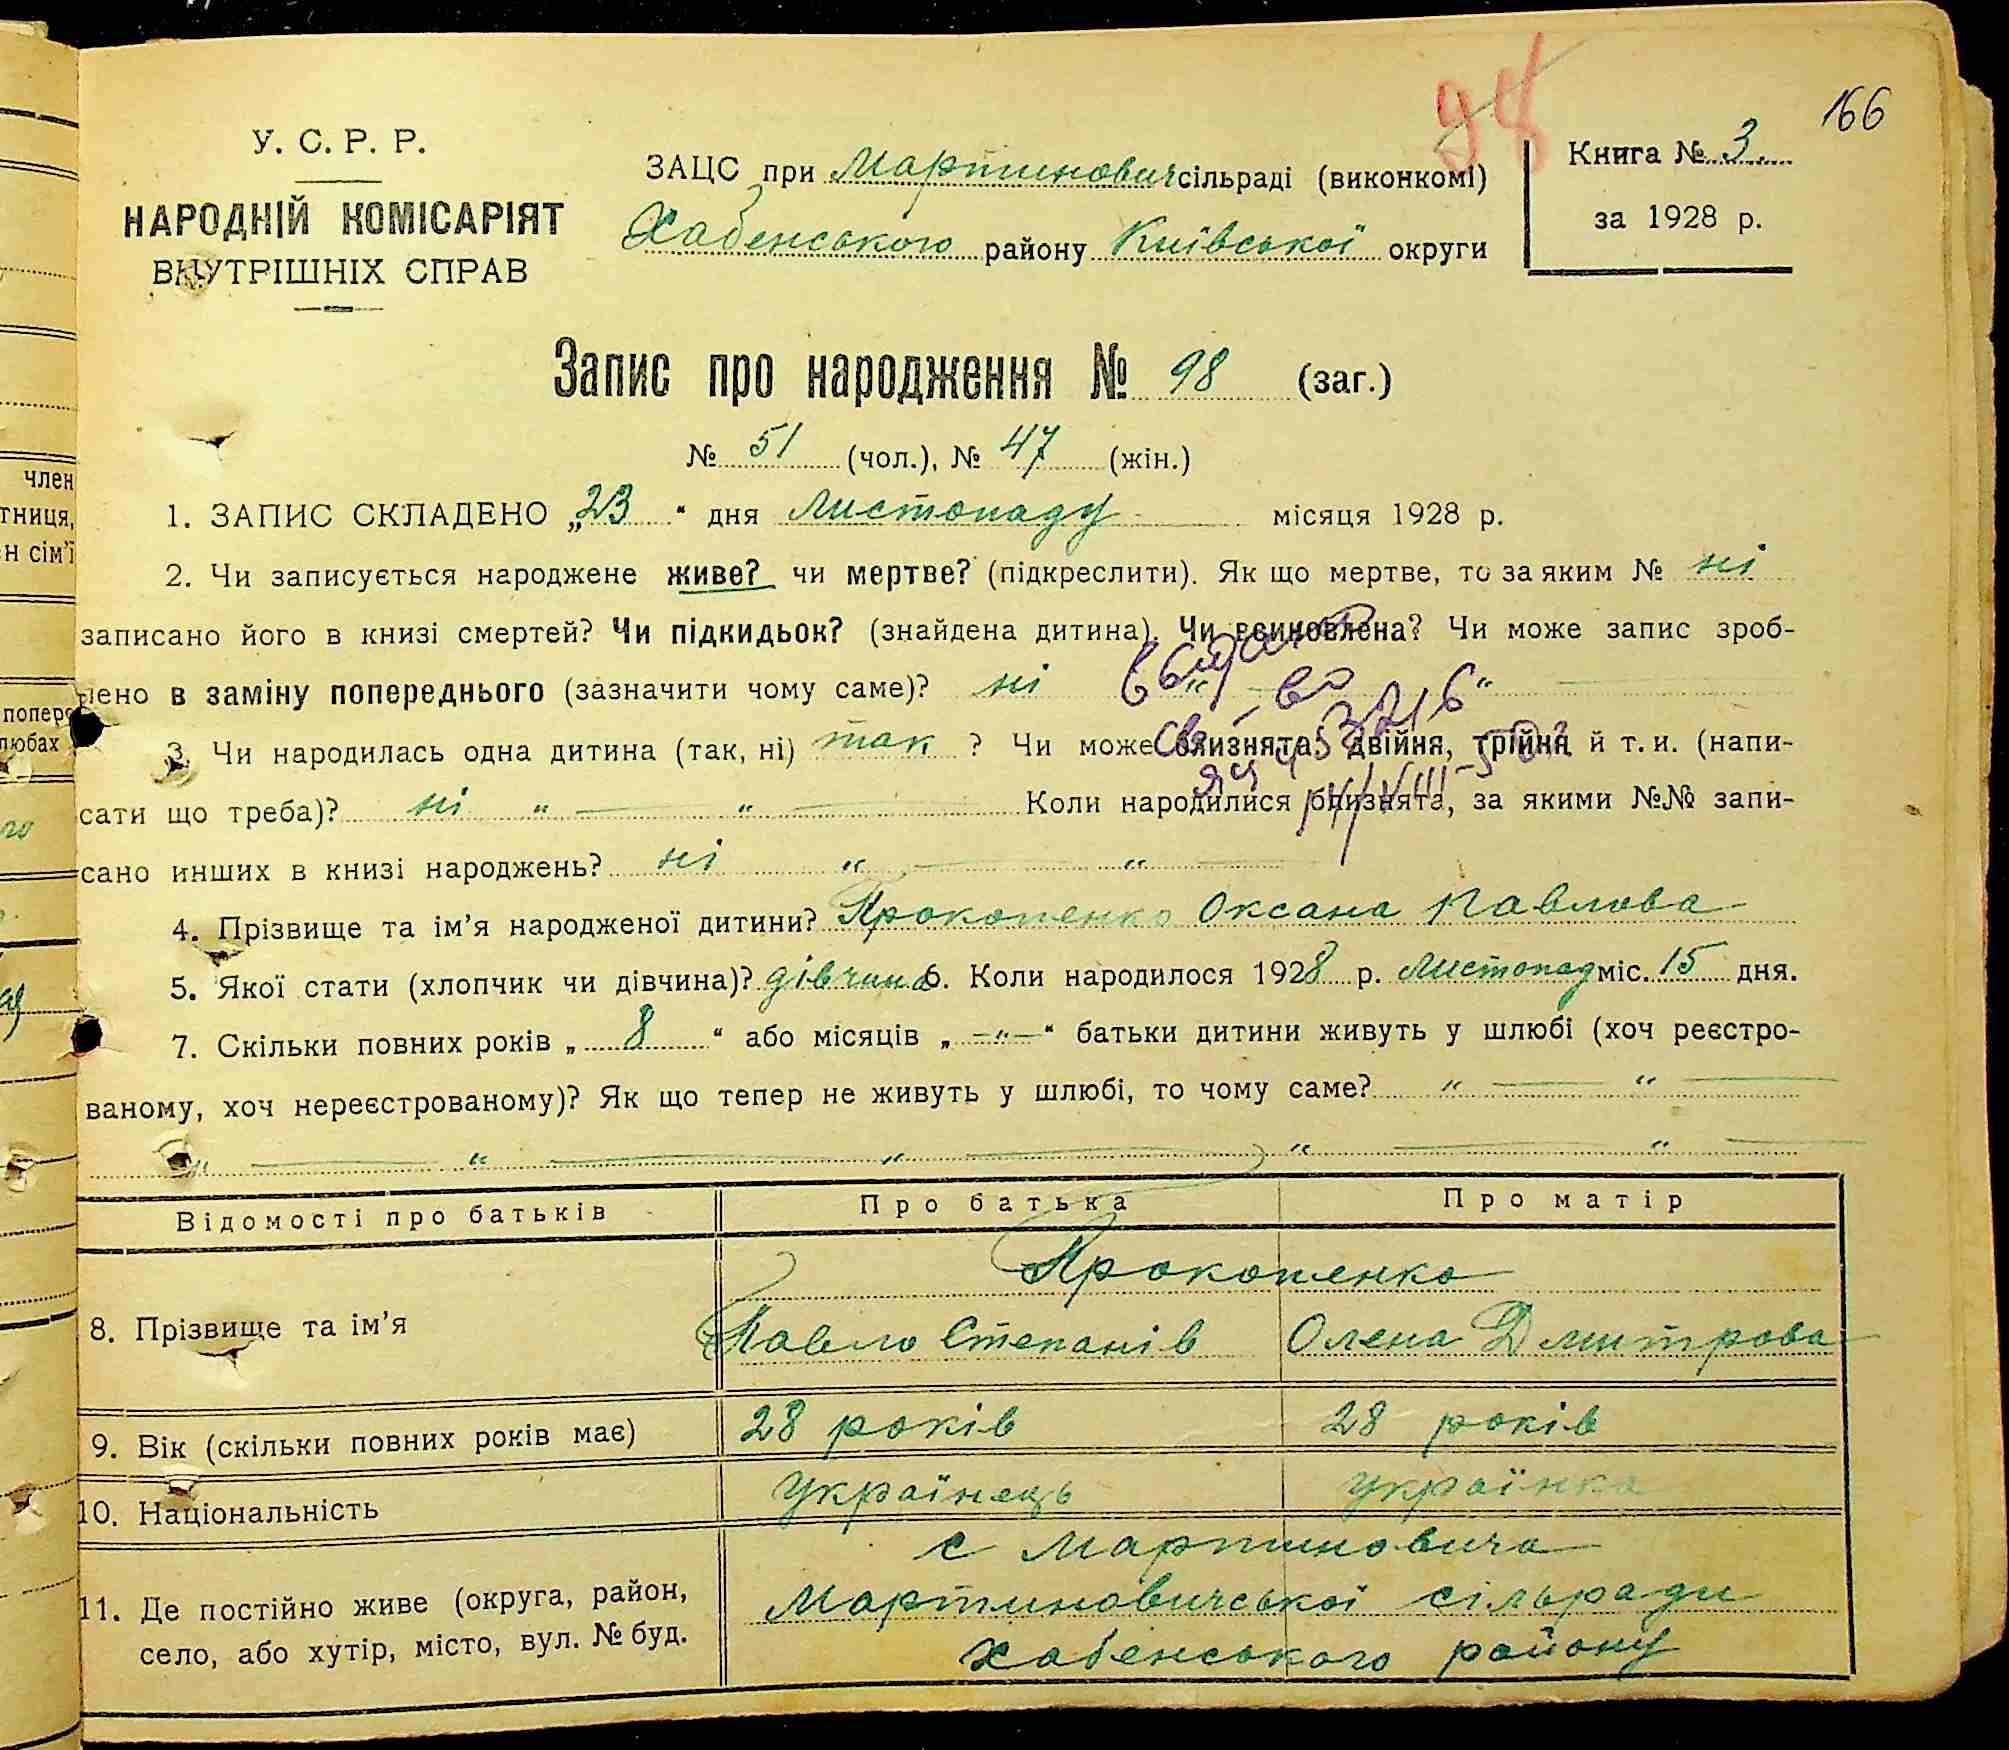 98
166
У. С. Р. Р.
НАРОДНІЙ КОМІСАРІЯТ
ВНУТРІШНІХ СПРАВ
ЗАЦС при Мартинович сільраді (виконкомі)
Хабенського району Київської округи
Книга № 3.
за 1928 р.
Запис про народження № 98 (заг.)
№ 51 (чол.), № 47 (жін.)
1. ЗАПИС СКЛАДЕНО „23“ дня Листопаду місяця 1928 р.
2. Чи записується народжене живе? чи мертве? (підкреслити). Як що мертве, то за яким № ні
записано його в книзі смертей? Чи підкидьок? (знайдена дитина). Чи всиновлена? Чи може запис зроб-
лено в заміну попереднього (зазначити чому саме)? ні „ — “
3. Чи народилась одна дитина (так, ні) так ? Чи може близнята: двійня, трійня й т. и. (напи-
сати що треба)? ні “ — “ — Коли народилися близнята, за якими №№ запи-
сано инших в книзі народжень? ні “ — “ —
4. Прізвище та ім’я народженої дитини? Прокопенко Оксана Павлова
5. Якої стати (хлопчик чи дівчина)? дівчина 6. Коли народилося 1928 р. Листопад міс. 15 дня.
7. Скільки повних років „ 8 “ або місяців „ —“— “ батьки дитини живуть у шлюбі (хоч реєстро-
ваному, хоч нереєстрованому)? Як що тепер не живуть у шлюбі, то чому саме? “ — “ —
“ — “ — “ — “ — “ —
Відомості про батьків Про батька Про матір
Прокопенко
8. Прізвище та ім’я Павло Степанів Олена Дмитрова
9. Вік (скільки повних років має) 28 років 28 років
10. Національність українець українка
с Мартиновича
11. Де постійно живе (округа, район, Мартиновичської сільради
село, або хутір, місто, вул. № буд. Хабенського району
член
тниця,
н сім’ї